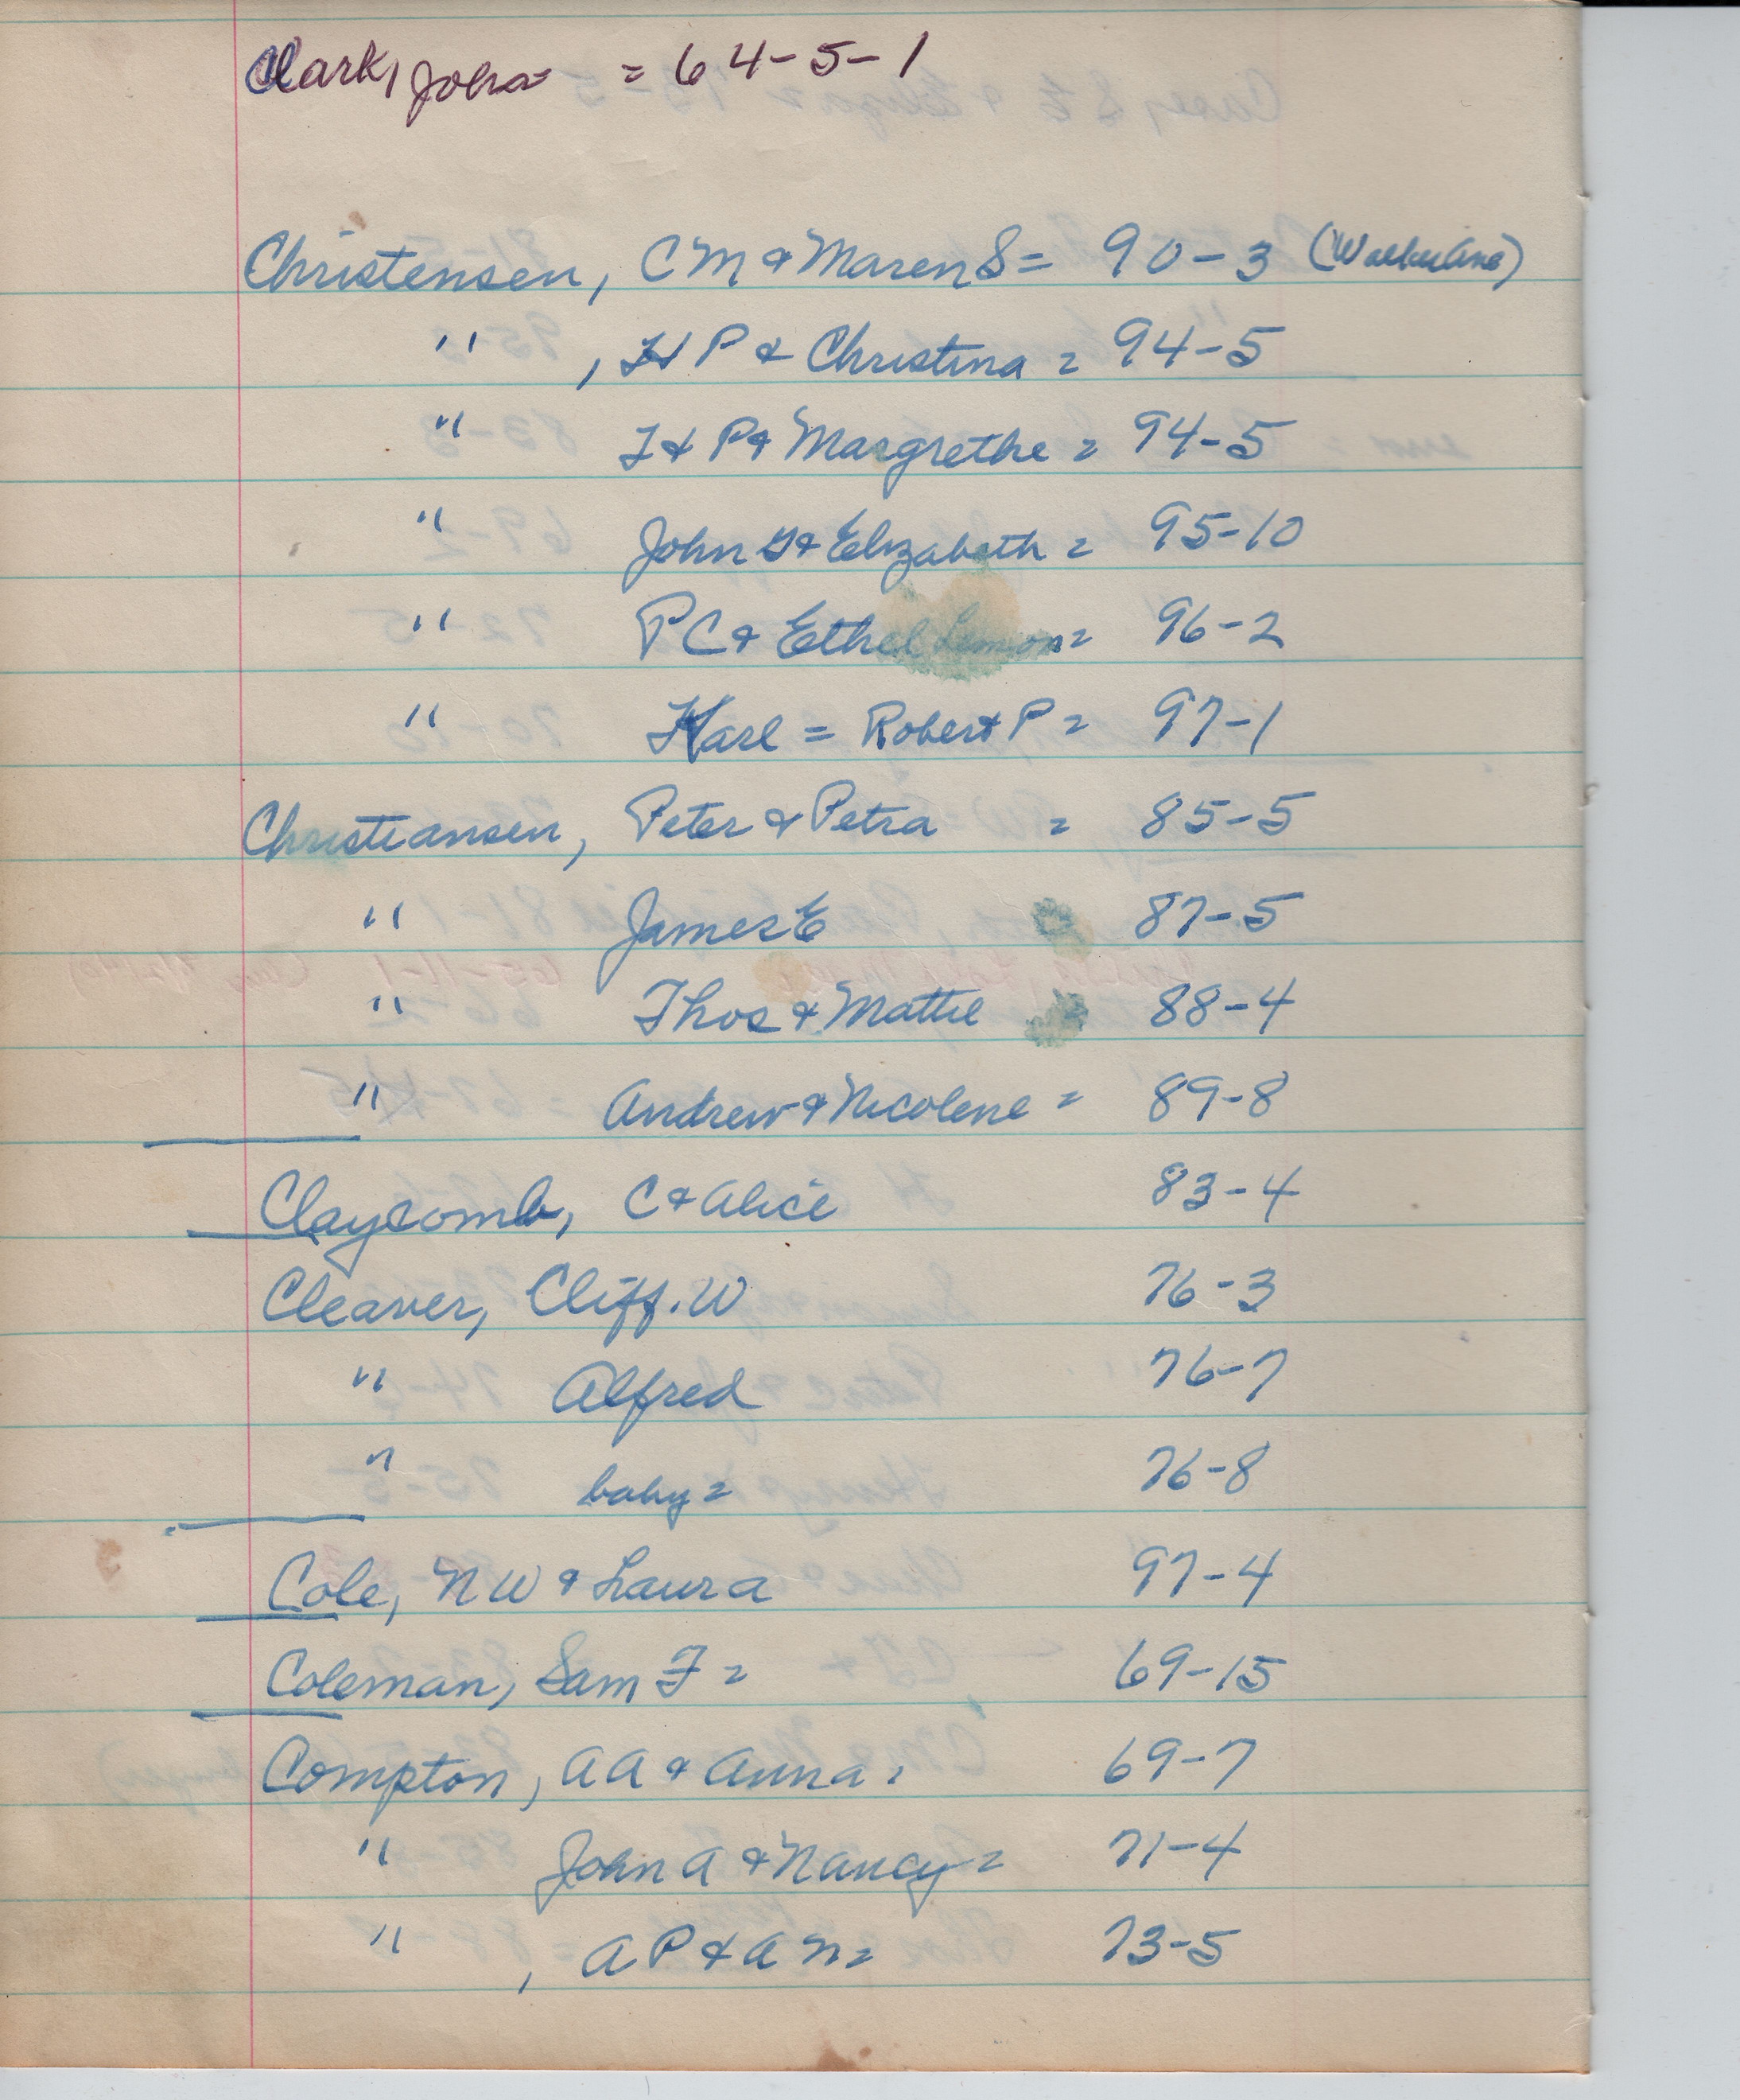 Clark, John = 64-5-1
Christensen, CM & Maren S = 90-3
" , H P & Christina = 94-5
" H P & Margrethe = 94-5
" John G & Elizabeth = 95-10
" P C & Ethel Lemon = 96-2
" Karl = Robert P = 97-1
Christiansen, Peter & Petra = 85-5
" James E 87-5
" Thos & Mattie 88-4
" Andrew & Nicolene = 89-8
Claycomb, C & Alice 83-4
Cleaver, Cliff. W 76-3
" Alfred 76-7
" baby = 76-8
Cole, N W & Laura 97-4
Coleman, Sam F = 69-15
Compton, A A & Anna = 69-7
" John A & Nancy = 71-4
" , A P & A N = 73-5